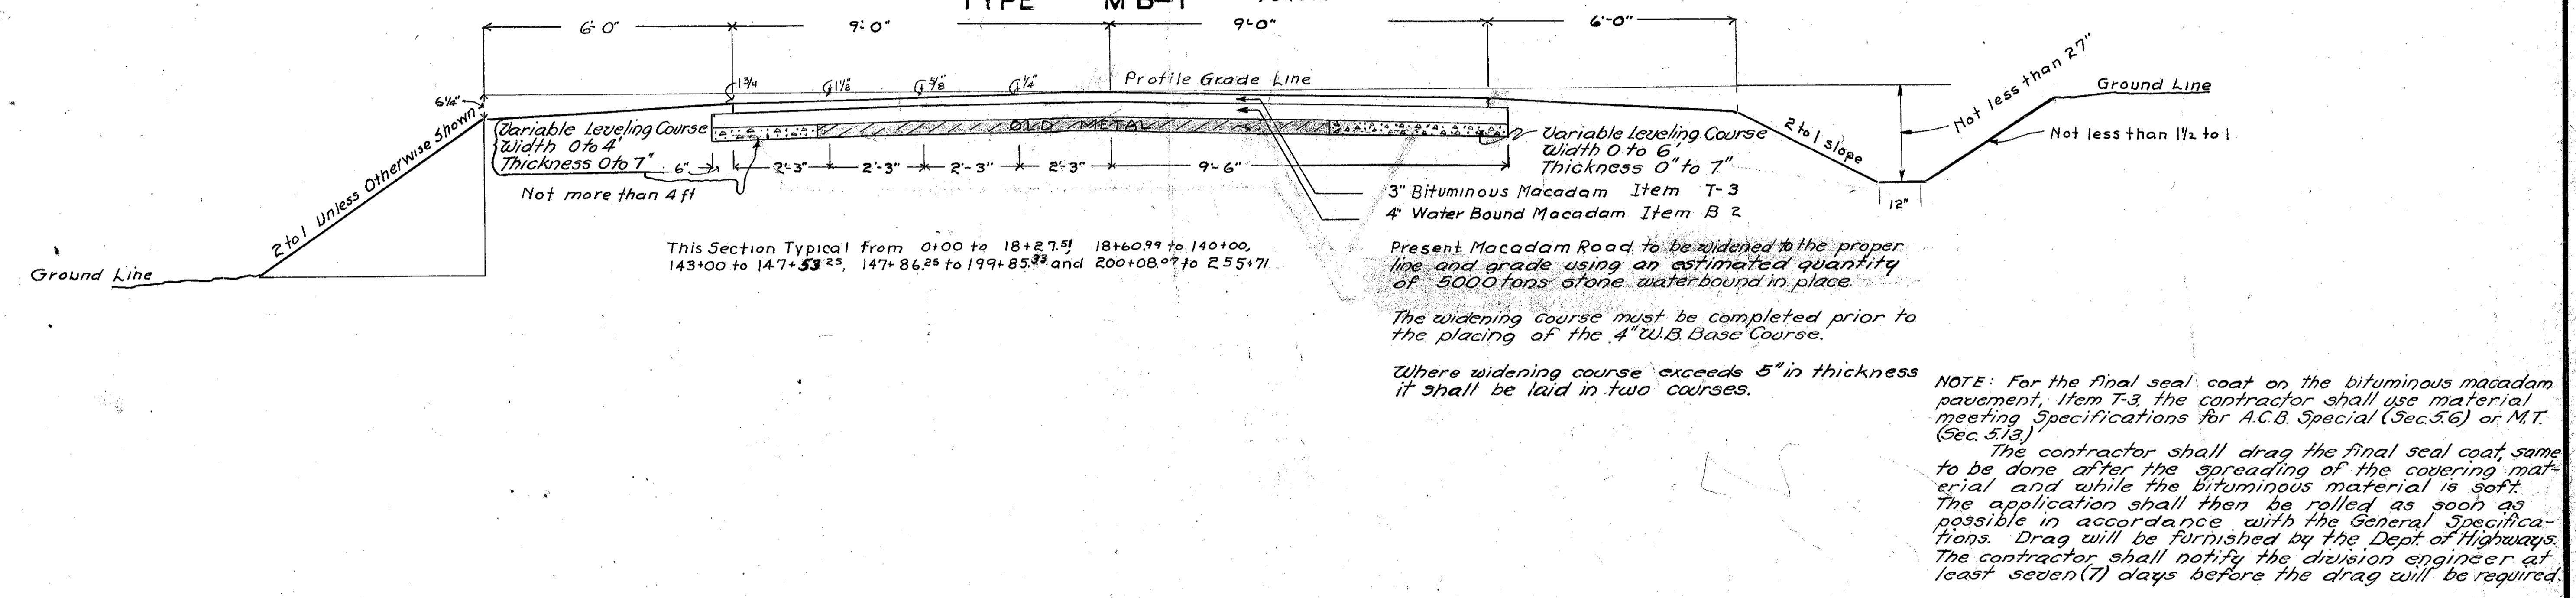 TYPE MB-1
6'-0" 9'-0" 9'-0" 6'-0"
1 3/4 1 1/8 5/8 1/4 Profile Grade Line
6 1/4"
2 to 1 Unless Otherwise Shown
Ground Line
Variable Leveling Course
Width 0 to 4'
Thickness 0 to 7"
Not more than 4 ft
OLD METAL
6" 2'-3" 2'-3" 2'-3" 2'-3" 9'-6"
Variable Leveling Course
Width 0 to 6'
Thickness 0" to 7"
3" Bituminous Macadam Item T-3
4" Water Bound Macadam Item B 2
2 to 1 slope
12"
Not less than 27"
Ground Line
Not less than 1 1/2 to 1
This Section Typical from 0+00 to 18+27.51, 18+60.99 to 140+00,
143+00 to 147+53.25, 147+86.25 to 199+85.33 and 200+08.07 to 255+71
Present Macadam Road to be widened to the proper
line and grade using an estimated quantity
of 5000 tons stone waterbound in place.
The widening course must be completed prior to
the placing of the 4" W.B. Base Course.
Where widening course exceeds 5" in thickness
it shall be laid in two courses.
NOTE: For the final seal coat on the bituminous macadam
pavement, Item T-3, the contractor shall use material
meeting Specifications for A.C.B. Special (Sec.5.6) or M.T.
(Sec. 5.13.)
The contractor shall drag the final seal coat, same
to be done after the spreading of the covering mat-
erial and while the bituminous material is soft.
The application shall then be rolled as soon as
possible in accordance with the General Specifica-
tions. Drag will be furnished by the Dept. of Highways.
The contractor shall notify the division engineer at
least seven (7) days before the drag will be required.